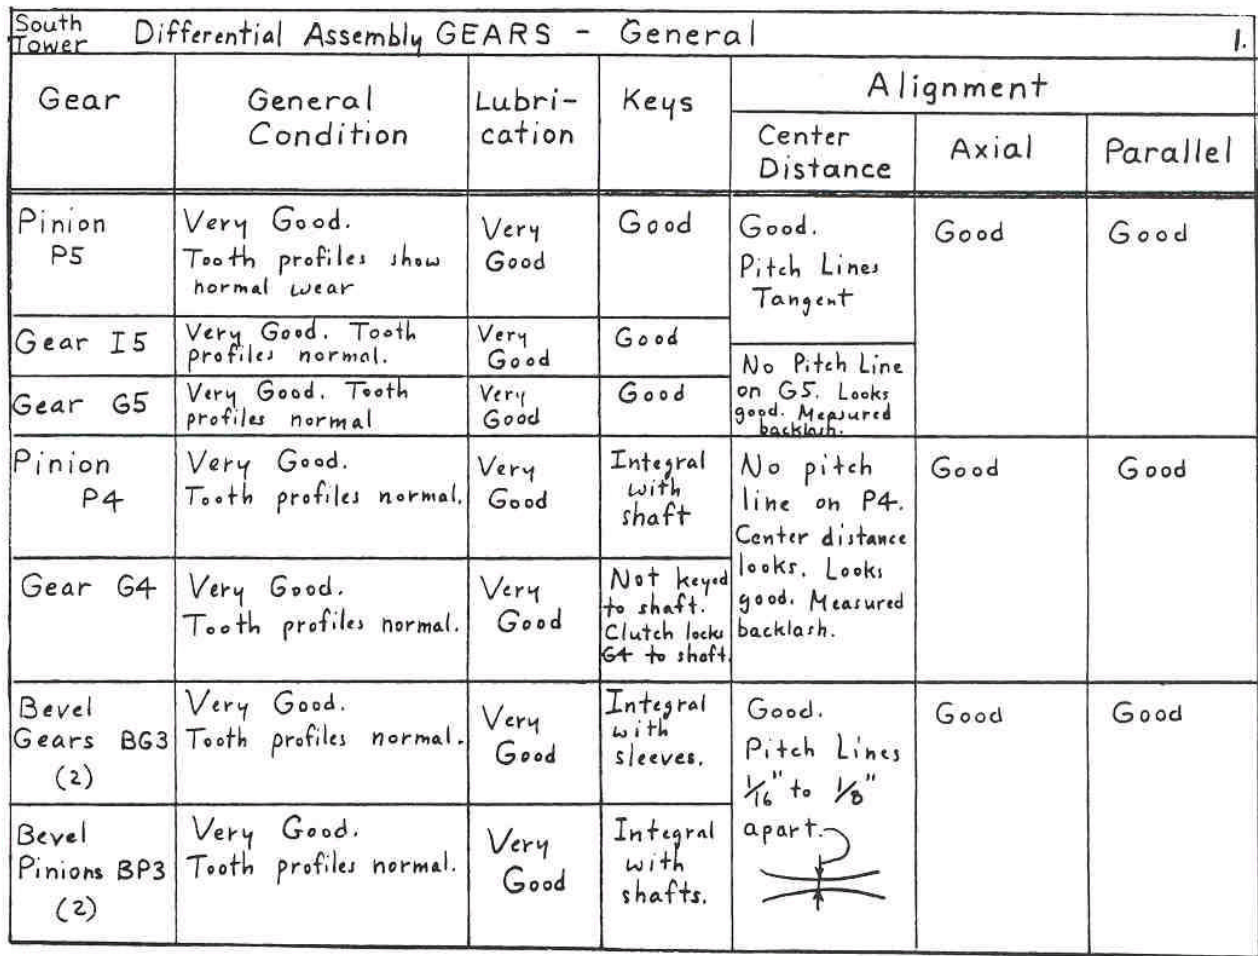 South
Tower
Differential Assembly GEARS - General
1.
Gear
General
Condition
Lubri-
cation
Keys
Alignment
Center
Distance
Axial
Parallel
Pinion
P5
Very Good.
Tooth profiles show
normal wear
Very
Good
Good
Good.
Pitch Lines
Tangent
Good
Good
Gear I5
Very Good. Tooth
profiles normal.
Very
Good
Good
Gear G5
Very Good. Tooth
profiles normal
Very
Good
Good
No Pitch Line
on G5. Looks
good. Measured
backlash.
Pinion
P4
Very Good.
Tooth profiles normal.
Very
Good
Integral
with
shaft
No pitch
line on P4.
Center distance
looks. Looks
good. Measured
backlash.
Good
Good
Gear G4
Very Good.
Tooth profiles normal.
Very
Good
Not keyed
to shaft.
Clutch locks
G4 to shaft.
Bevel
Gears BG3
(2)
Very Good.
Tooth profiles normal.
Very
Good
Integral
with
sleeves.
Good.
Pitch Lines
1/16" to 1/8"
apart.
Good
Good
Bevel
Pinions BP3
(2)
Very Good.
Tooth profiles normal.
Very
Good
Integral
with
shafts.